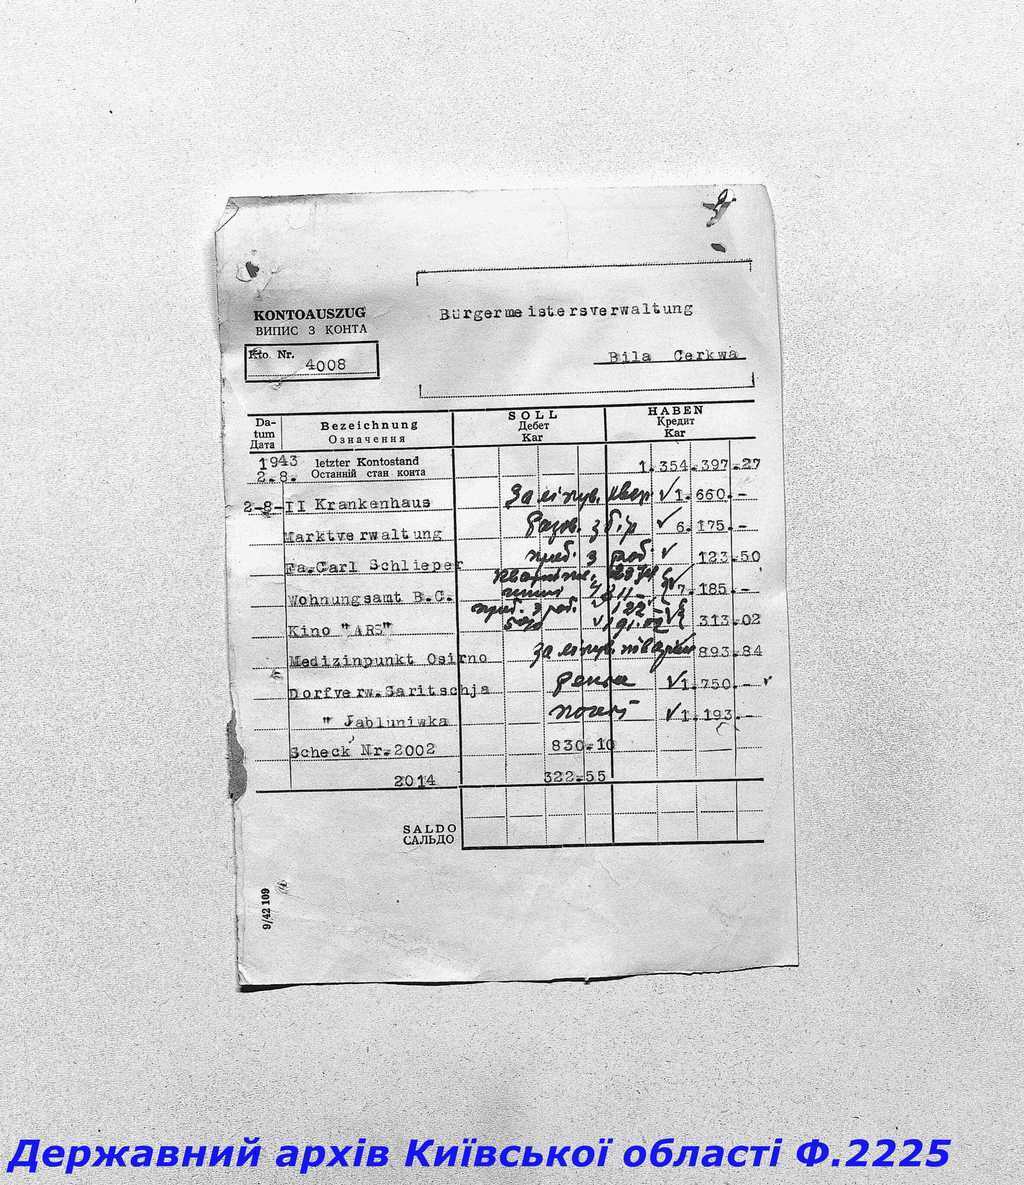 Bürgermeistersverwaltung
KONTOAUSZUG
ВИПИС З КОНТА
Bila Cerkwa
Kto. Nr. 4008
Da-tum Дата Bezeichnung Означення SOLL Дебет Kar HABEN Кредит Kar
1943 2.8. letzter Kontostand Останній стан конта 1.354.397.27
2-8- II Krankenhaus За лікув. ✓ 1.660.-
Marktverwaltung Разов. збір ✓ 6.175.-
Fa.Carl Schlieper приб. з роб. ✓ 123.50
Wohnungsamt B.C. ✓ 7.185.-
Kino "ARS" приб. з роб. 5% 122 - 191.02 313.02
Medizinpunkt Osirno за лікув. 893.84
Dorfverw.Saritschja ✓ 1.750.- ✓
" Jabluniwka ✓ 1.193.-
Scheck Nr.2002 830.10
2014 322.55
SALDO
САЛЬДО
9/42 109
Державний архів Київської області Ф.2225